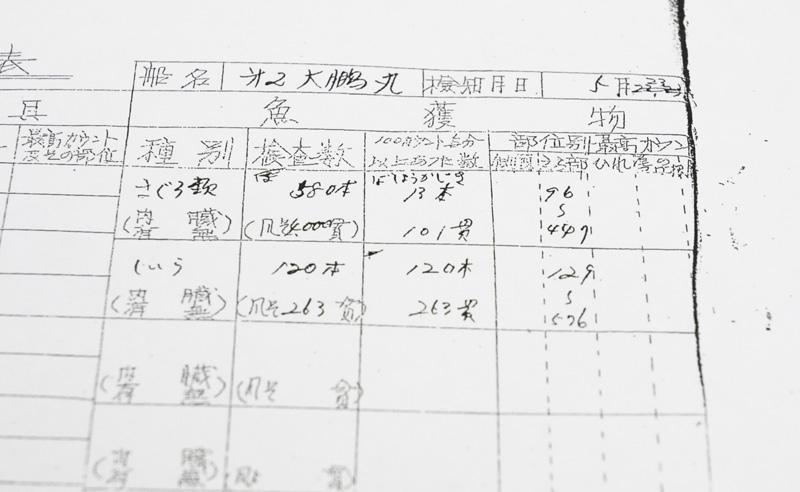 表
船名 第2大鵬丸 検知月日 5月
具 魚獲物
最高カウント 及その部位 種別 検査数 100カウント毎分 以上あった数 部位別最高カウント
側頭 えら部 ひれ
まぐろ類 580本 ばしょうかじき 13本 96
5
(内臓有無) (凡そ4,000貫) 101貫 447
しいら 120本 120本 129
5
(内臓有無) (凡そ263貫) 263貫 576
(内臓有無) (凡そ 貫)
(内臓有無) (凡そ 貫)